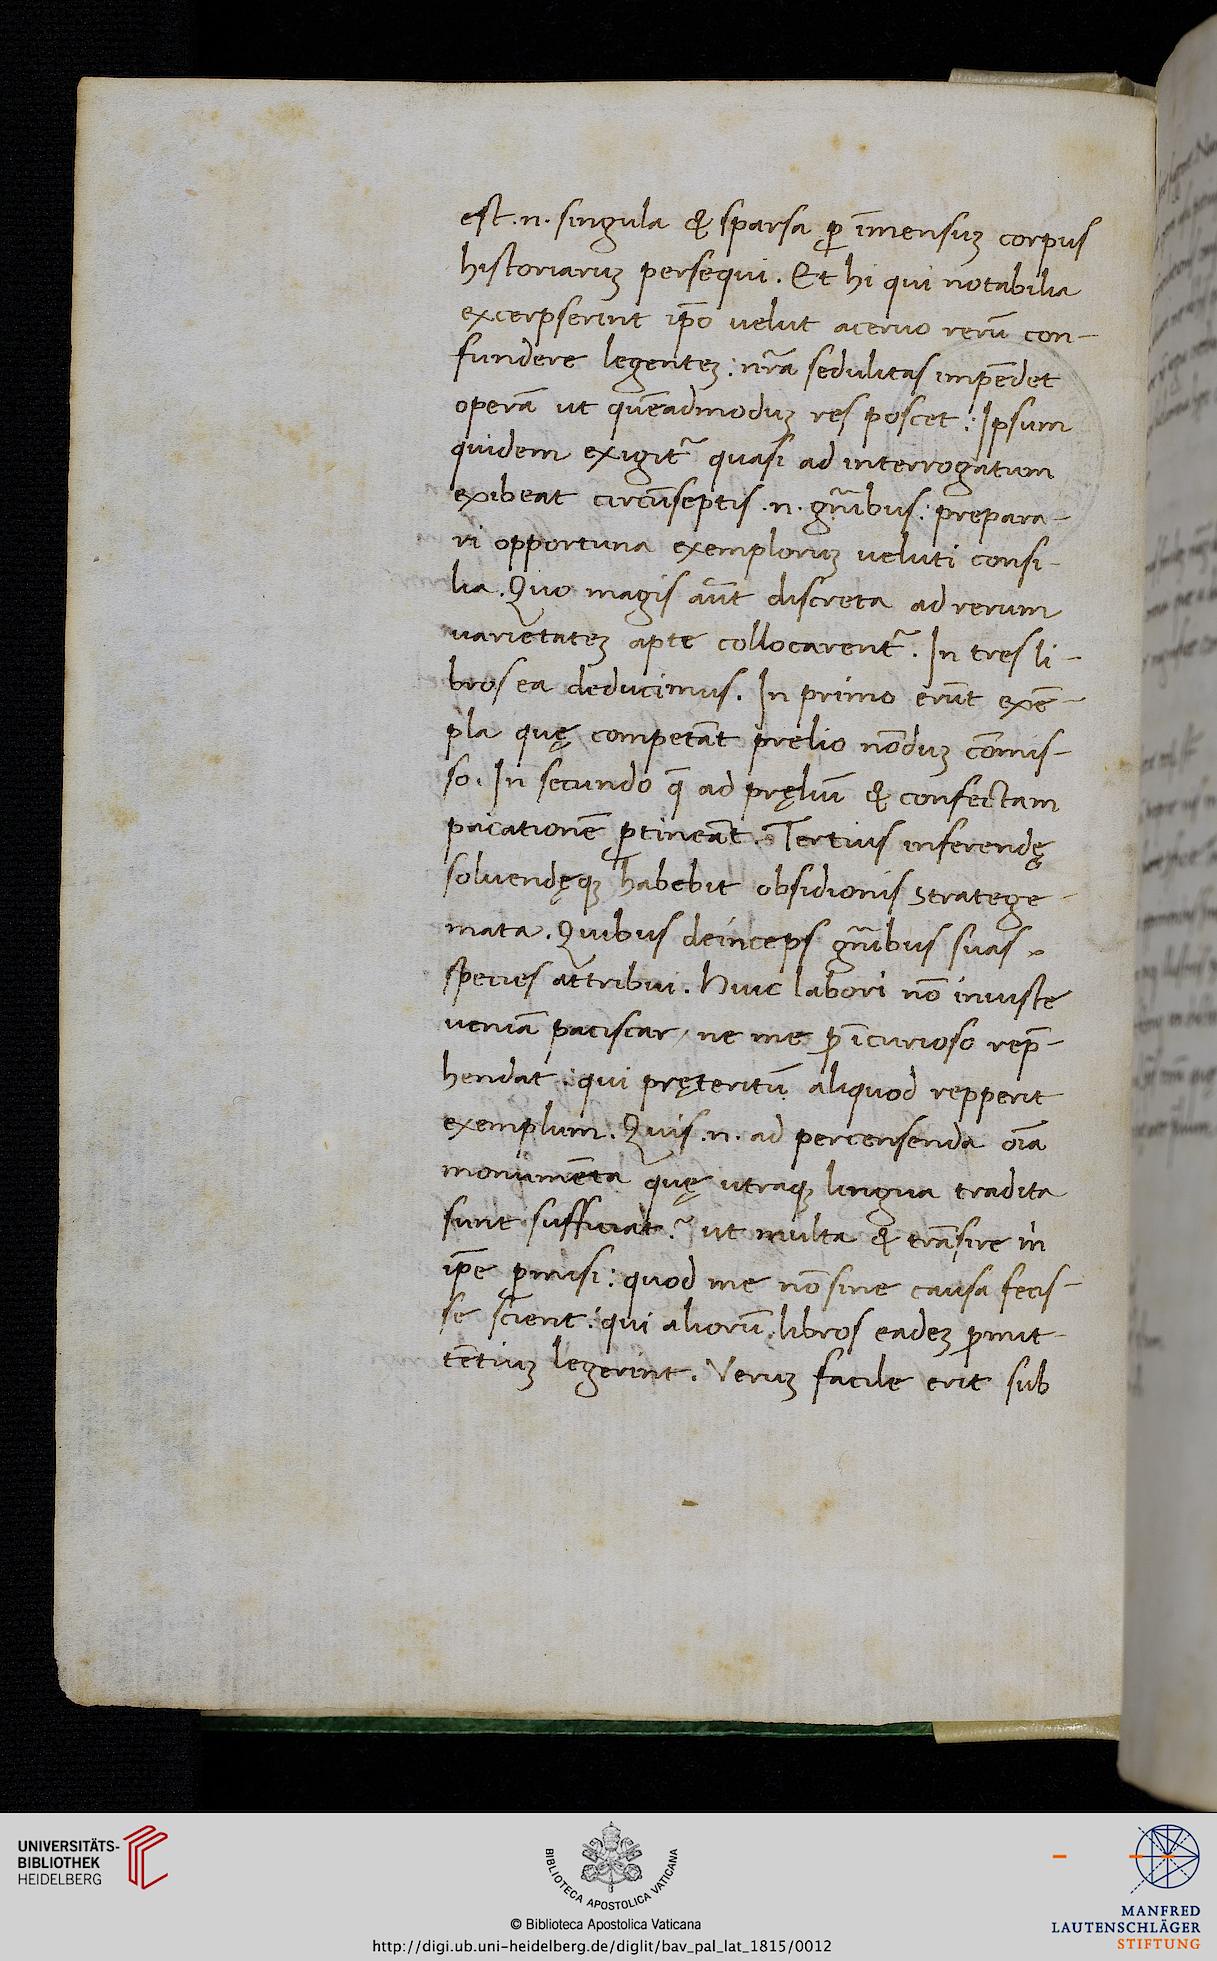 est .n. singula & sparsa ꝑ īmensuꝫ corpus
historiaruꝫ persequi. Et hi qui notabilia
excerpserint ip̄o velut acervo rerū con-
fundere legenteꝫ: nr̄a sedulitas impēdet
operā ut quēadmoduꝫ res poscet: Ipsum
quidem exigit̄ quasi ad interrogatum
exibeat circūseptis .n. gn̄ibus: prepara-
ri opportuna exemploruꝫ veluti consi-
lia. Quo magis aūt discreta ad rerum
varietateꝫ apte collocarent̄. In tres li-
bros ea deducimus. In primo erūt exē-
pla quę competāt prelio nōduꝫ cōmis-
so. In secundo q̄ ad pręliū & confectam
pacationē ꝑtineāt. Tertius inferendę
soluendęqꝫ habebit obsidionis stratege-
mata. Quibus deinceps gn̄ibus suas
species attribui. Huic labori nō iniuste
veniā paciscar / ne me ꝑ īcurioso rep̄-
hendat: qui pręteritū aliquod repperit
exemplum. Quis .n. ad percensenda oīa
monumēta quę utraqꝫ lingua tradita
sunt sufficiat? ut multa & trāsire in
ip̄e ꝑmisi: quod me nō sine causa fecis-
se scient: qui aliorū libros eadeꝫ ꝓmit-
tētiuꝫ legerint. Veruꝫ facile erit sub
UNIVERSITÄTS-
BIBLIOTHEK
HEIDELBERG
BIBLIOTECA APOSTOLICA VATICANA
© Biblioteca Apostolica Vaticana
http://digi.ub.uni-heidelberg.de/diglit/bav_pal_lat_1815/0012
MANFRED
LAUTENSCHLÄGER
STIFTUNG